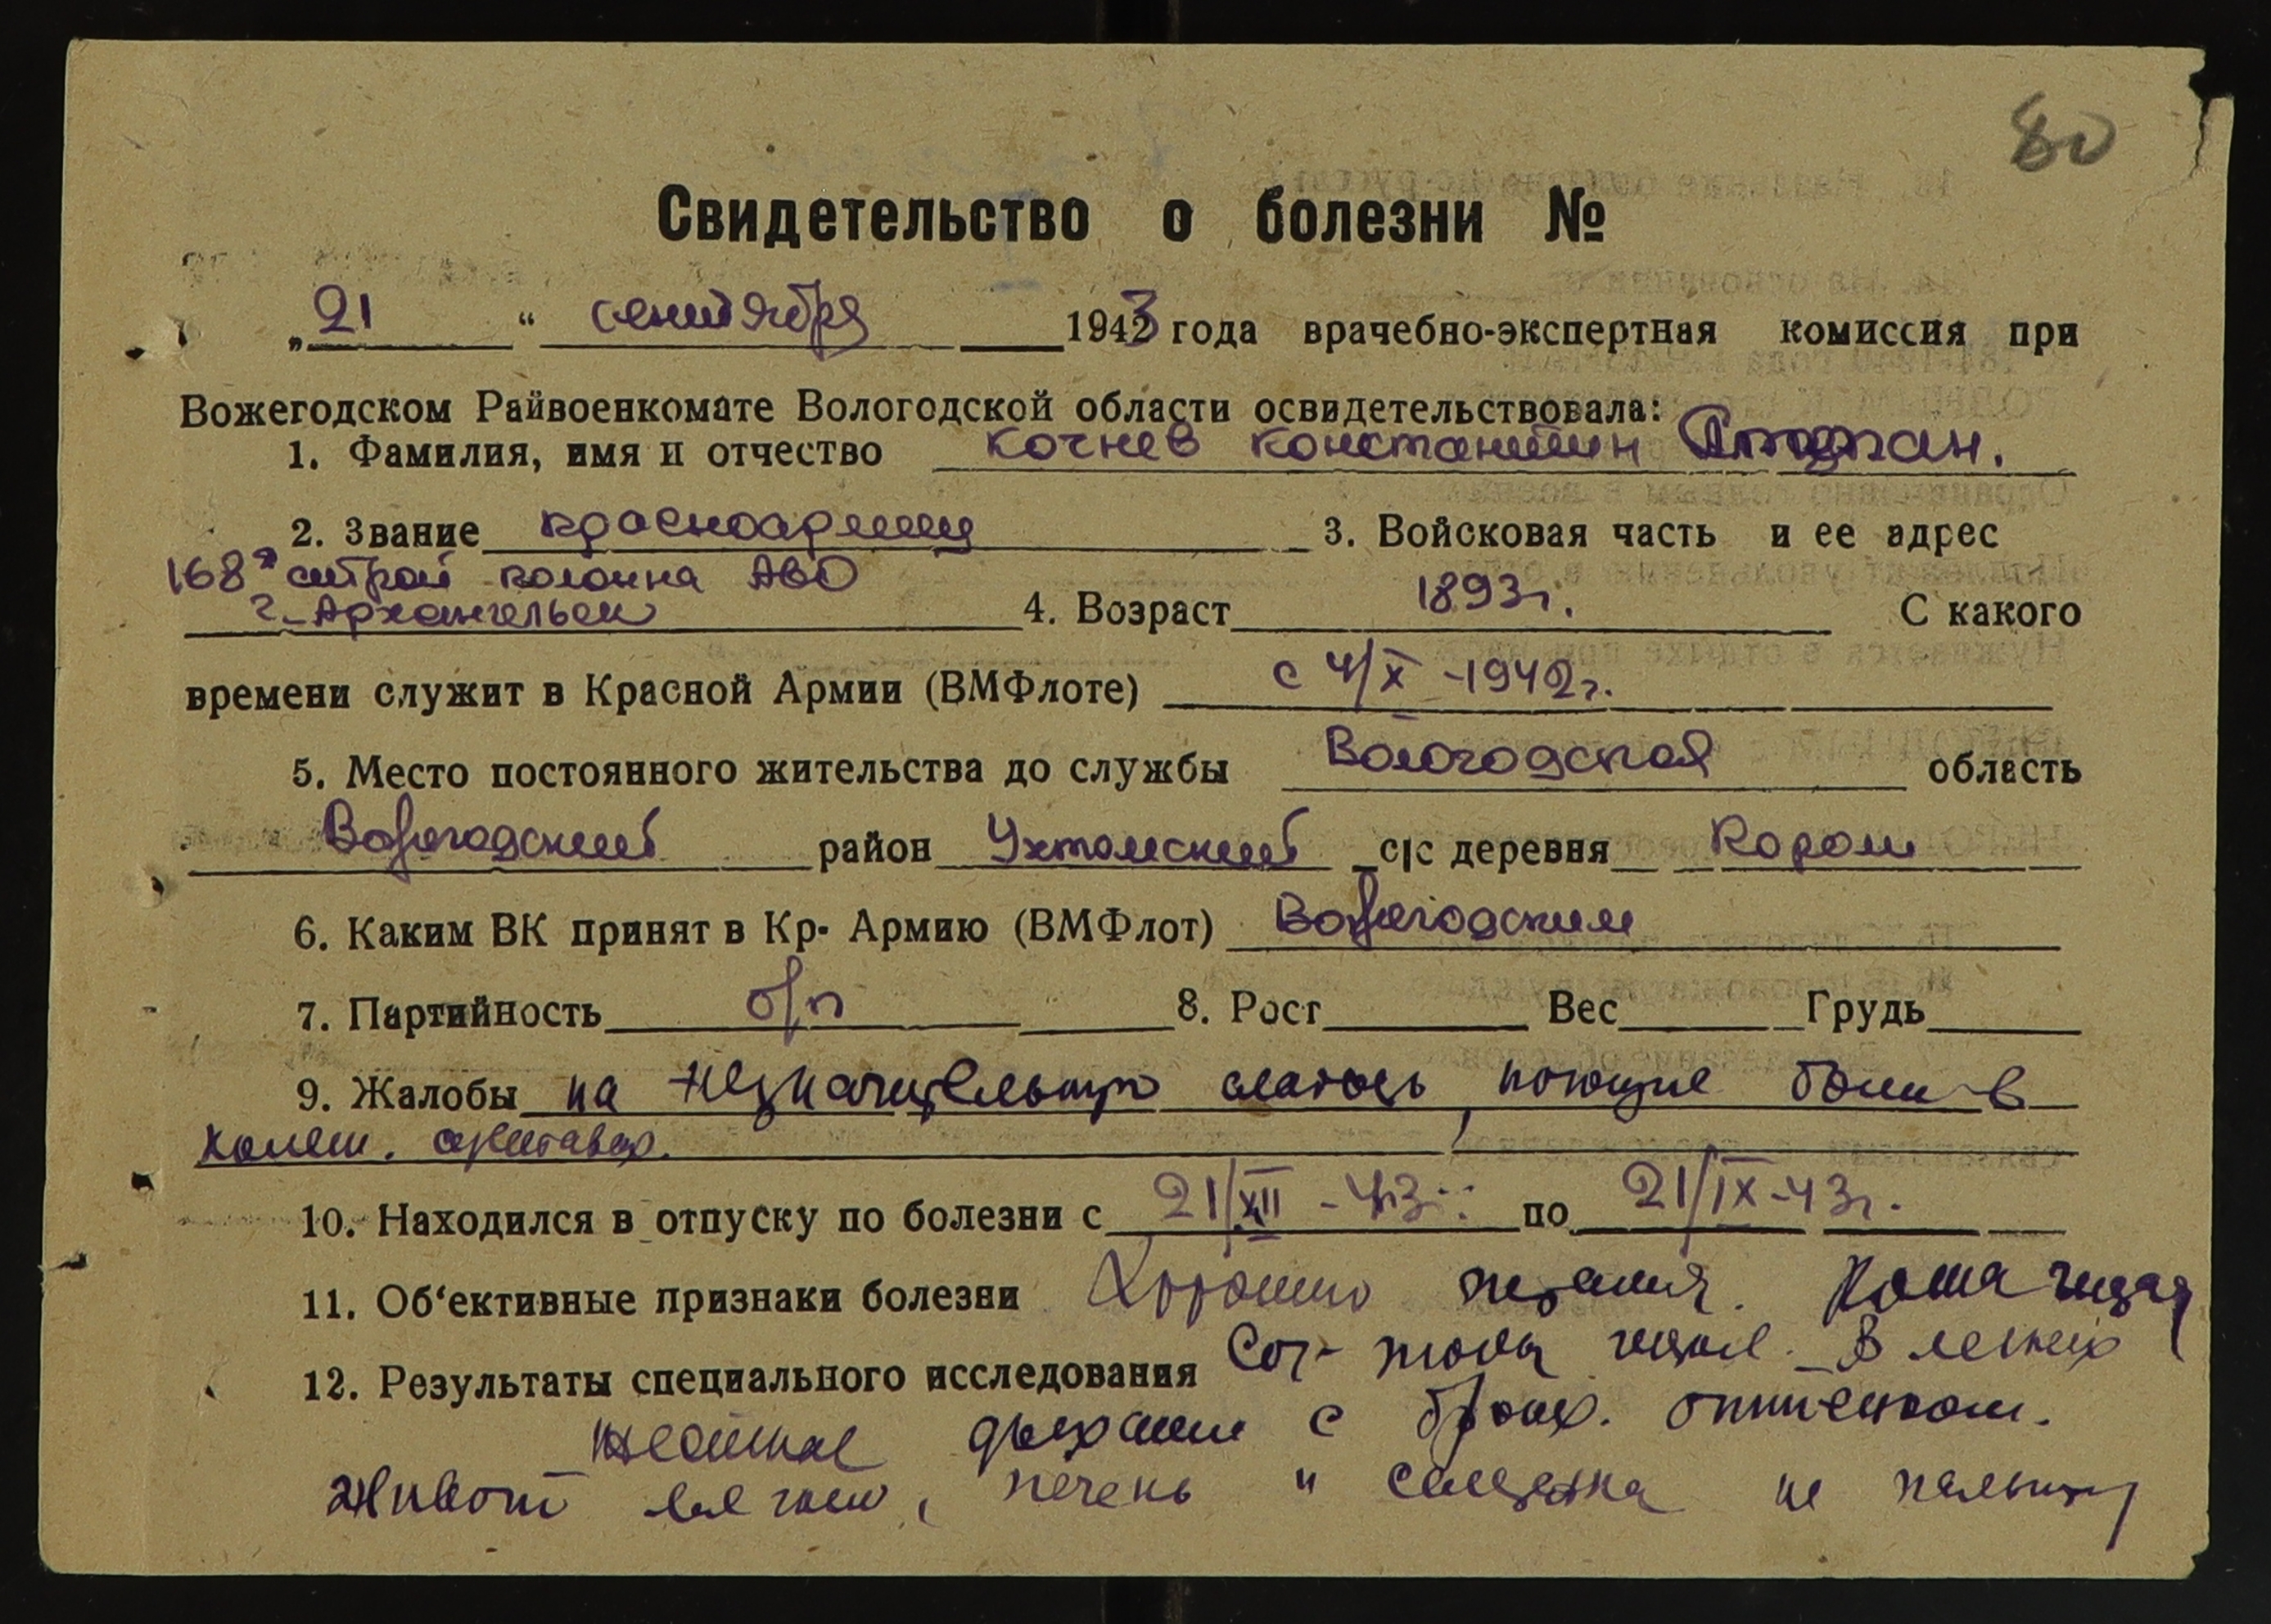 80
Свидетельство о болезни №
„21“ сентября 1943 года врачебно-экспертная комиссия при
Вожегодском Райвоенкомате Вологодской области освидетельствовала:
1. Фамилия, имя и отчество Кочнев Константин
2. Звание красноармеец 3. Войсковая часть и ее адрес
168я строй колонна АВО
г. Архангельск 4. Возраст 1893г. С какого
времени служит в Красной Армии (ВМФлоте) с 4/X -1942г.
5. Место постоянного жительства до службы Вологодская область
Вожегодский район Ухтомский с/с деревня
6. Каким ВК принят в Кр. Армию (ВМФлот) Вожегодским
7. Партийность б/п 8. Рост Вес Грудь
9. Жалобы на незначительную слабость, ноющие боли в
колен. суставах.
10. Находился в отпуску по болезни с 21/XII - 43г. по 21/IX-43г.
11. Об‘ективные признаки болезни Хорошего питания. Кожа чистая
12. Результаты специального исследования тоны чистые. В легких
жесткое дыхание с бронх. оттенком.
Живот мягкий, печень и селезенка не пальпир